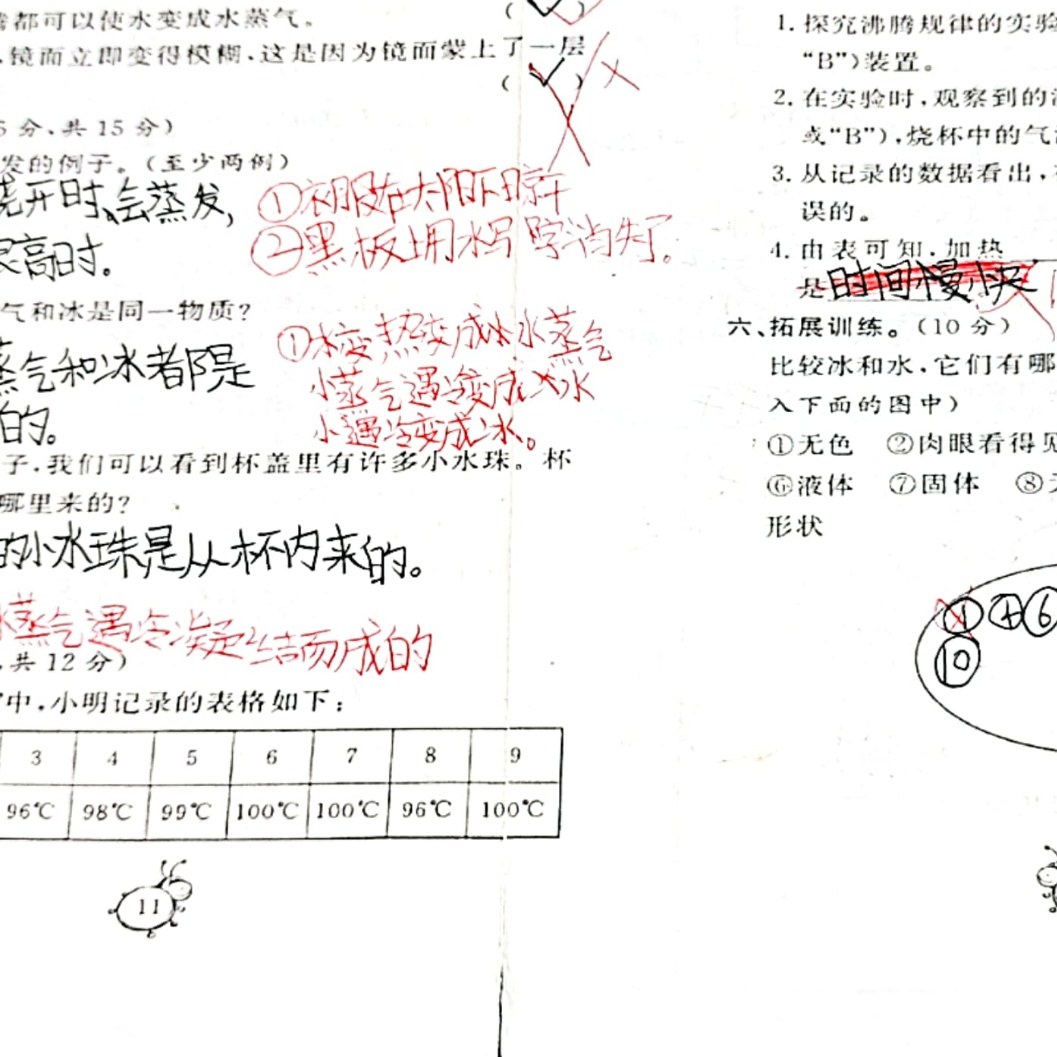 都可以使水变成水蒸气。
（✓）
镜面立即变得模糊，这是因为镜面蒙上了一层
（✓）
分，共15分）
发的例子。（至少两例）
烧开时，会蒸发，
很高时。
①衣服在太阳下晾干
②黑板上用水写字消失了。
气和冰是同一物质？
蒸气和冰者阝是
的。
①水变热变成水水蒸气
水蒸气遇冷变成水
水遇冷变成冰。
子，我们可以看到杯盖里有许多小水珠。杯
哪里来的？
的小水珠是从杯内来的。
水蒸气遇冷凝结而成的
，共12分）
中，小明记录的表格如下：
3 4 5 6 7 8 9
96℃ 98℃ 99℃ 100℃ 100℃ 96℃ 100℃
11
1. 探究沸腾规律的实验
“B”）装置。
2. 在实验时，观察到的
或“B”），烧杯中的气
3. 从记录的数据看出，
误的。
4. 由表可知，加热
是时间慢
六、拓展训练。（10分）
比较冰和水，它们有哪
入下面的图中）
①无色 ②肉眼看得见
⑥液体 ⑦固体 ⑧
形状
① ④ ⑥
⑩